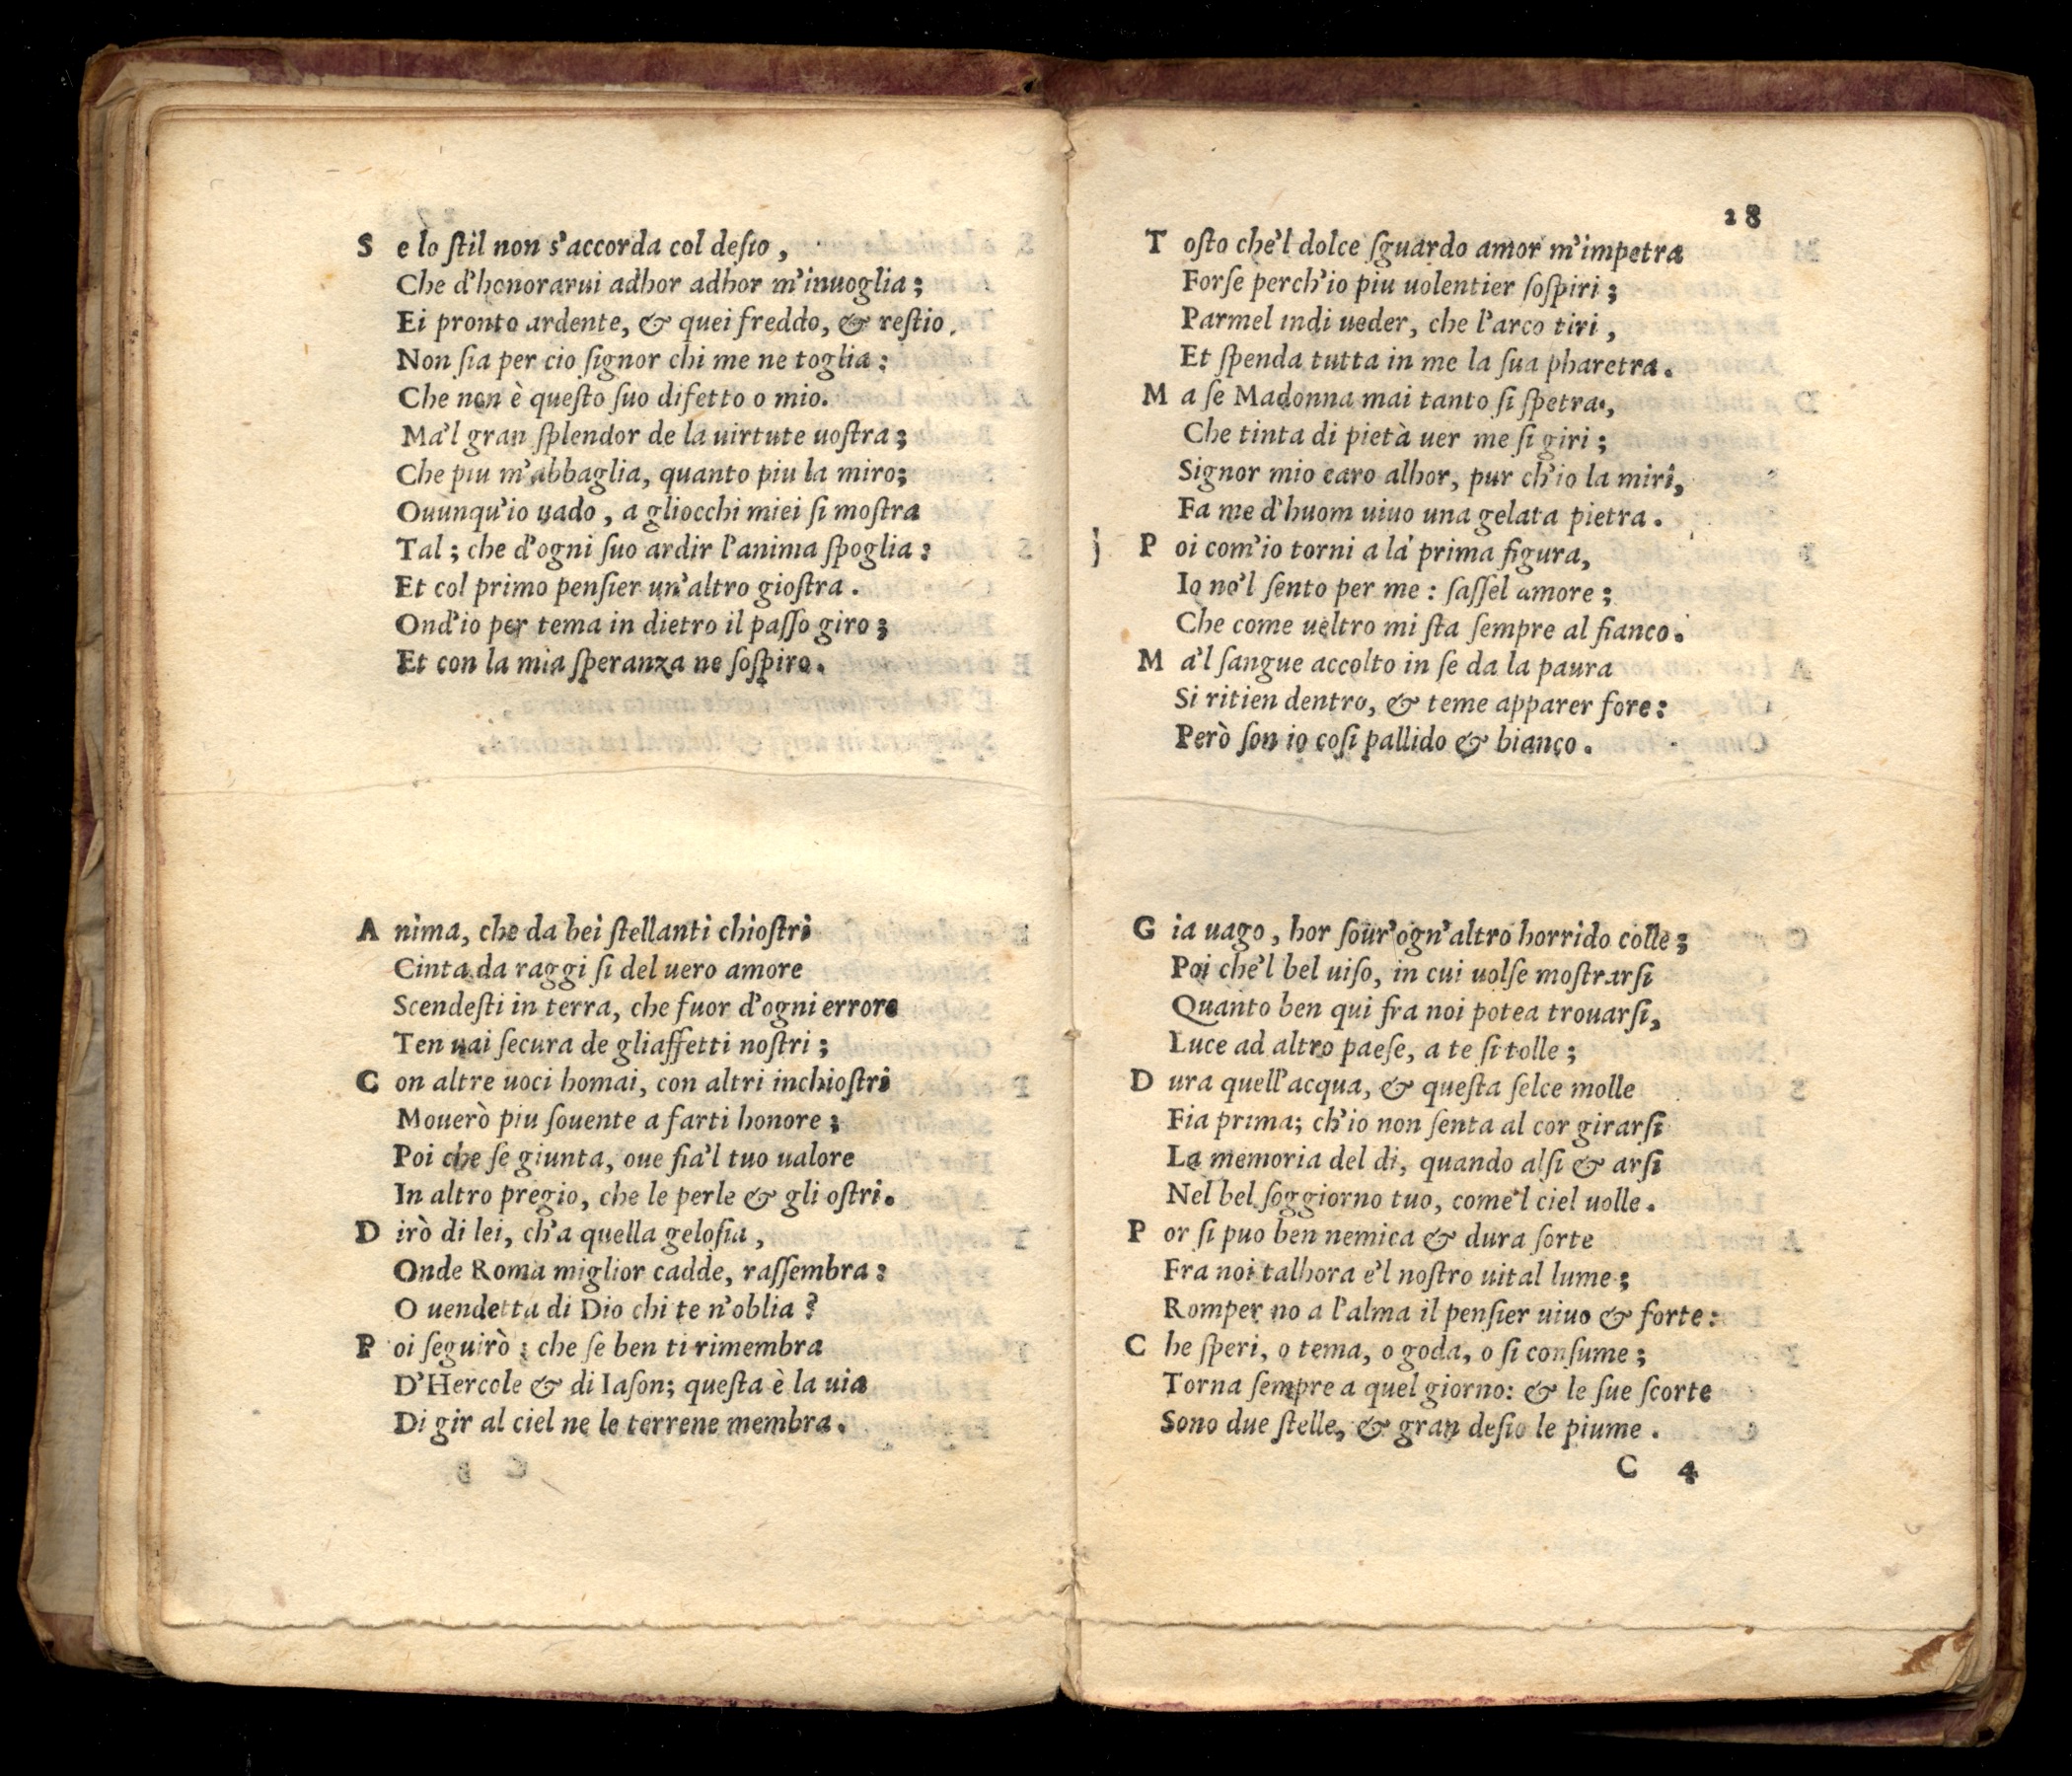 S e lo ſtil non s'accorda col deſio,
Che d'honorarui adhor adhor m'inuoglia;
Ei pronto ardente, & quei freddo, & reſtio.
Non ſia per cio ſignor chi me ne toglia:
Che non è queſto ſuo difetto o mio.
Ma'l gran ſplendor de la uirtute uoſtra;
Che piu m'abbaglia, quanto piu la miro;
Ouunqu'io uado, a gliocchi miei ſi moſtra
Tal; che d'ogni ſuo ardir l'anima ſpoglia:
Et col primo penſier un'altro gioſtra.
Ond'io per tema in dietro il paſſo giro;
Et con la mia ſperanza ne ſoſpiro.
A nima, che da bei ſtellanti chioſtri
Cinta da raggi ſi del uero amore
Scendeſti in terra, che fuor d'ogni errore
Ten uai ſecura de gliaffetti noſtri;
C on altre uoci homai, con altri inchioſtri
Mouerò piu ſouente a farti honore;
Poi che ſe giunta, oue ſia'l tuo ualore
In altro pregio, che le perle & gli oſtri.
D irò di lei, ch'a quella geloſia,
Onde Roma miglior cadde, raſſembra:
O uendetta di Dio chi te n'oblia?
P oi ſeguirò; che ſe ben ti rimembra
D'Hercole & di Iaſon; queſta è la uia
Di gir al ciel ne le terrene membra.
28
T oſto che'l dolce ſguardo amor m'impetra
Forſe perch'io piu uolentier ſoſpiri;
Parmel indi ueder, che l'arco tiri,
Et ſpenda tutta in me la ſua pharetra.
M a ſe Madonna mai tanto ſi ſpetra,
Che tinta di pietà uer me ſi giri;
Signor mio caro alhor, pur ch'io la miri,
Fa me d'huom uiuo una gelata pietra.
P oi com'io torni a la prima figura,
Io no'l ſento per me: ſaſſel amore;
Che come ueltro mi ſta ſempre al fianco.
M a'l ſangue accolto in ſe da la paura
Si ritien dentro, & teme apparer fore:
Però ſon io coſi pallido & bianco.
G ia uago, hor ſour'ogn'altro horrido colle;
Poi che'l bel uiſo, in cui uolſe moſtrarſi
Quanto ben qui fra noi potea trouarſi,
Luce ad altro paeſe, a te ſi tolle;
D ura quell'acqua, & queſta ſelce molle
Fia prima; ch'io non ſenta al cor girarſi
La memoria del di, quando alſi & arſi
Nel bel ſoggiorno tuo, come'l ciel uolle.
P or ſi puo ben nemica & dura ſorte
Fra noi talhora e'l noſtro uital lume;
Romper no a l'alma il penſier uiuo & forte:
C he ſperi, o tema, o goda, o ſi conſume;
Torna ſempre a quel giorno: & le ſue ſcorte
Sono due ſtelle, & gran deſio le piume.
C 4